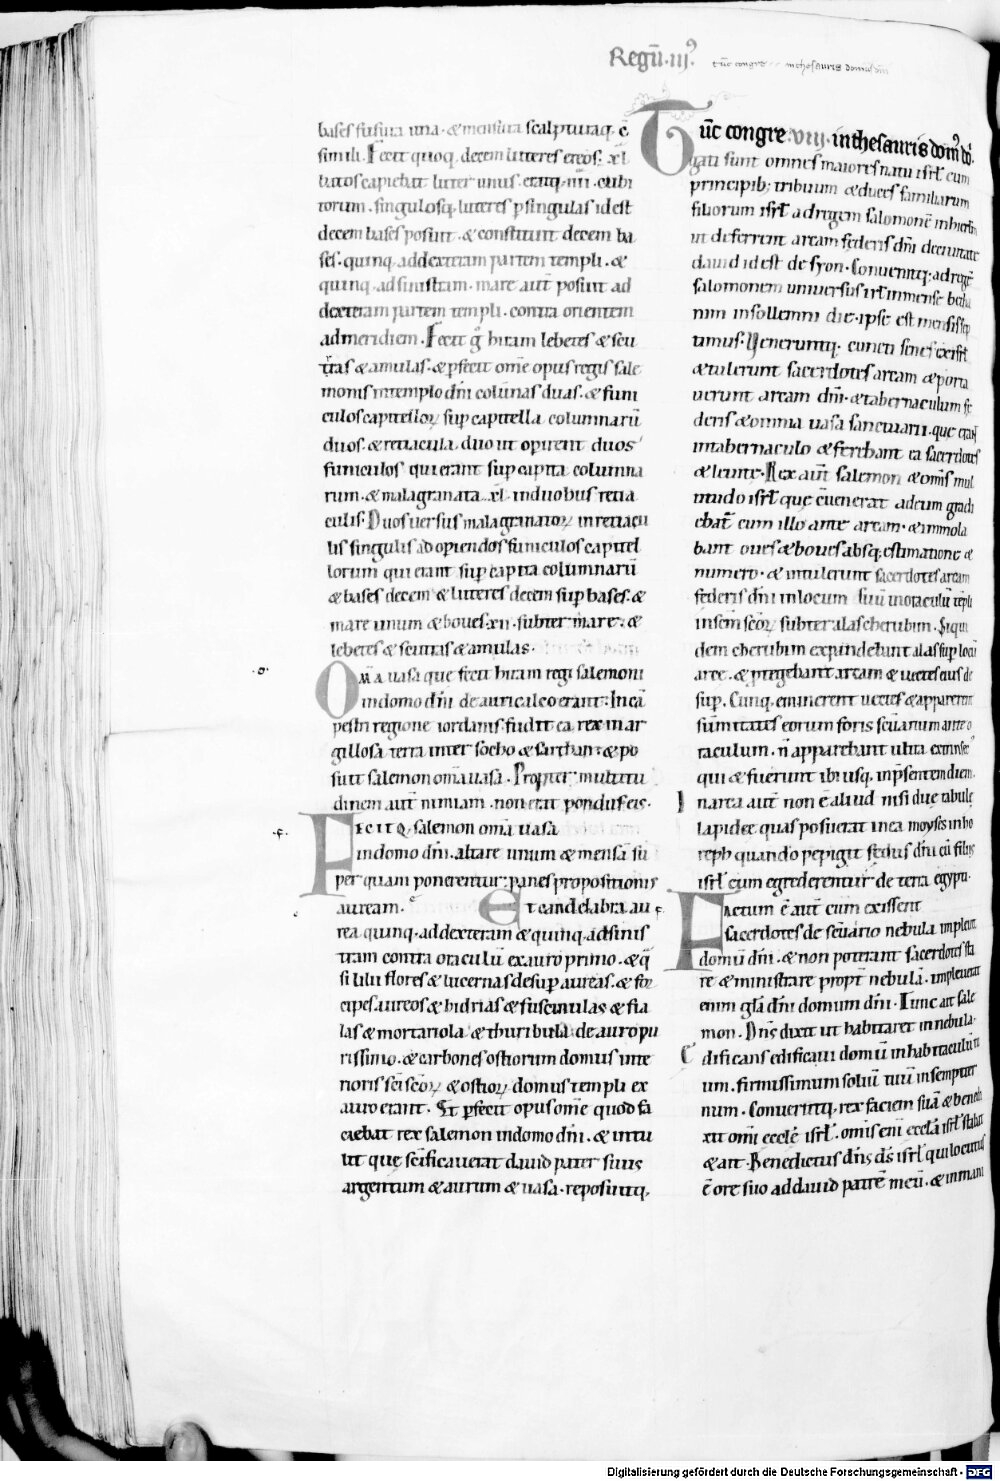 Regū·iij⁹.
tūc congre inthesauris domus dn̄i
bases fusura una·& mensura scalpturaq; c̄
simili. Fecit quoq; decem luteres ereos: xl
batos capiebat luter unus. eratq; iiii·cubi
torum·singulosq; luteres p singulas id est
decem bases posuit·& constituit decem ba
ses·quinq; ad dexteram partem templi·&
quinq; ad sinistram·mare aut̄ posuit ad
dexteram partem templi·contra orientem
ad meridiem. Fecit g̊ hiram lebetes & scu
tras & amulas·& pfecit om̄e opus regis sale
monis in templo dn̄i colūnas duas·& funi
culos capitelloꝝ sup capitella columnarū
duos·& retiacula·duo ut opirent duos
funiculos qui erant sup capita columna
rum·& malagranata·xl in duobus retia
culis·Duos uersus malagranatoꝝ in retiacu
lis singulis ad opiendos funiculos capitel
lorum qui erant sup capita columnarū
& bases decem & luteres decem sup bases·&
mare unum & boues·xii·subter mare·&
lebetes & scutras & amulas·
OM̄A uasa que fecit hiram regi salemoni
in domo dn̄i de auricalco erant: In cā
pestri regione iordanis·fudit ea rex in ar
gillosa terra inter socho & sarthan·& po
suit salemon om̄a uasa·Propter multitu
dinem aut̄ nimiam·non erat pondus eis·
FECITQ; salemon om̄a uasa
in domo dn̄i·altare unum & mensā su
per quam ponerentur panes propositionis
auream· Et candelabra au
rea quinq; ad dexteram & quinq; ad sinis
tram contra oraculū ex auro primo·& q̄
si lilii flores & lucernas desup aureas·& for
cipes aureos & hidrias & fuscinulas & fia
las & mortariola & thuribula de auro pu
rissimo·& cardones ostiorum domus inte
rioris sc̄i sc̄oꝝ & ostioꝝ domus templi ex
auro erant· Et pfecit opus om̄e quod fa
ciebat rex salemon in domo dn̄i·& intu
lit que sc̄ificauerat dauid pater suus
argentum & aurum & uasa·reposuitq;
Tūc congre·VIII·in thesauris dom⁹ dn̄i.
gati sunt omnes maiores natu isrl̄ cum
principib; tribuum & duces familiarum
filiorum isrl̄ ad regem salomonē in hierlm̄
ut deferrent arcam federis dn̄i de ciuitate
dauid id est de syon·Conuenitq; ad regē
salomonem uniuersus isrl̄ in mense betha
nim in sollemni die·ipse est mensis sep
timus·Veneruntq; cuncti senes ex isrl̄
& tulerunt sacerdotes arcam & porta
uerunt arcam dn̄i·& tabernaculum fe
deris & omnia uasa sanctuarii·que erant
in tabernaculo & ferebant ea sacerdotes
& leuite·Rex aut̄ salemon & omīs mul
titudo isrl̄ que c̄uenerat ad eum gradi
ebat̄ cum illo ante arcam·& immola
bant oues & boues absq; estimatione &
numero·& intulerunt sacerdotes arcam
federis dn̄i in locum suū in oraculū tēpli
in sc̄m sc̄oꝝ subter alas cherubim·Siqui
dem cherubim expandebant alas sup locū
arce·& ptegebant arcam & uectes eius de
sup·Cunq; eminerent uectes & apparerent
sūmitates eorum foris sc̄uarium ante o
raculum·n̄ apparebant ultra extrinsec⁹
qui & fuerunt ibi usq; in p̄sentem diem·
In arca aut̄ non ē aliud nisi due tabule
lapidee quas posuerat in ea moyses in ho
reph quando pepigit fedus dn̄s cū filiis
isrl̄ cum egrederentur de terra egypti·
Factum ē aut̄ cum exissent
sacerdotes de sc̄uario nebula impleuit
domū dn̄i·& non poterant sacerdotes sta
re & ministrare propt̄ nebulā·impleuerat
enim gl̄a dn̄i domum dn̄i·Tunc ait sale
mon·Dn̄s dixit ut habitaret in nebula·
Edificans edificaui domū in habitaculū tu
um·firmissimum soliū tuū in sempiter
num·Conuertitq; rex faciem suā & bened
xit omi eccle isrl̄·omīs eni eccl̄a isrl̄ stabat
& ait·Benedictus dn̄s d̄s isrl̄ qui locutus
ē ore suo ad dauid patrē meū·& in mani
Digitalisierung gefördert durch die Deutsche Forschungsgemeinschaft - DFG